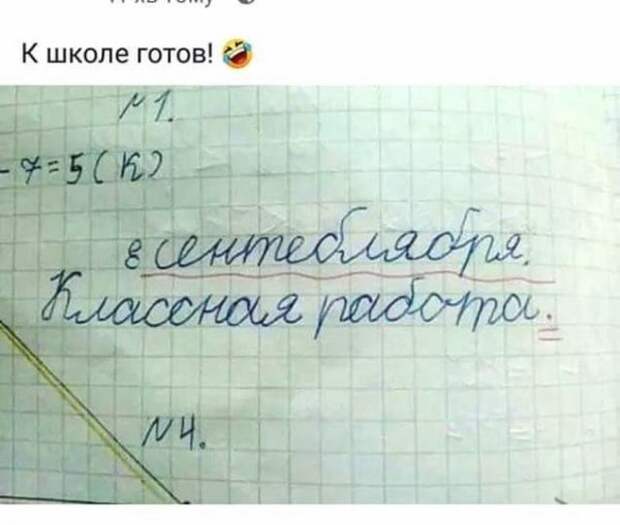 К школе готов! 🤣
№ 1.
- 7 = 5 ( К )
8 сентеблября.
Классная работа.
№ 4.